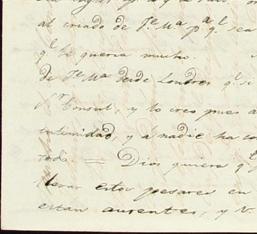 al criado de Je. Ma. pa. qe. sea
qe. le queria mucho.
de Je. Ma. desde Londres qe. se
Sr. Consul, y lo creo pues a
intimidad, y a nadie ha co
todo = Dios quiera qe.
llevar estos pesares en
estan ausentes, y V.